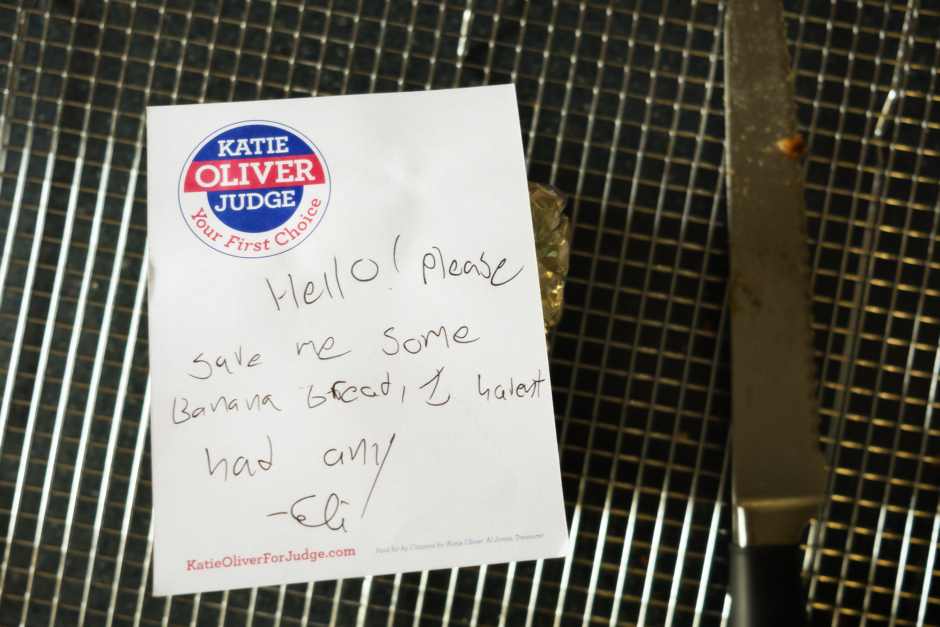 KATIE
OLIVER
JUDGE
Your First Choice
Hello! please
save me some
Banana Bread, I havent
had any
-Eli
KatieOliverForJudge.com
Paid for by Citizens for Katie Oliver. Al Jones, Treasurer